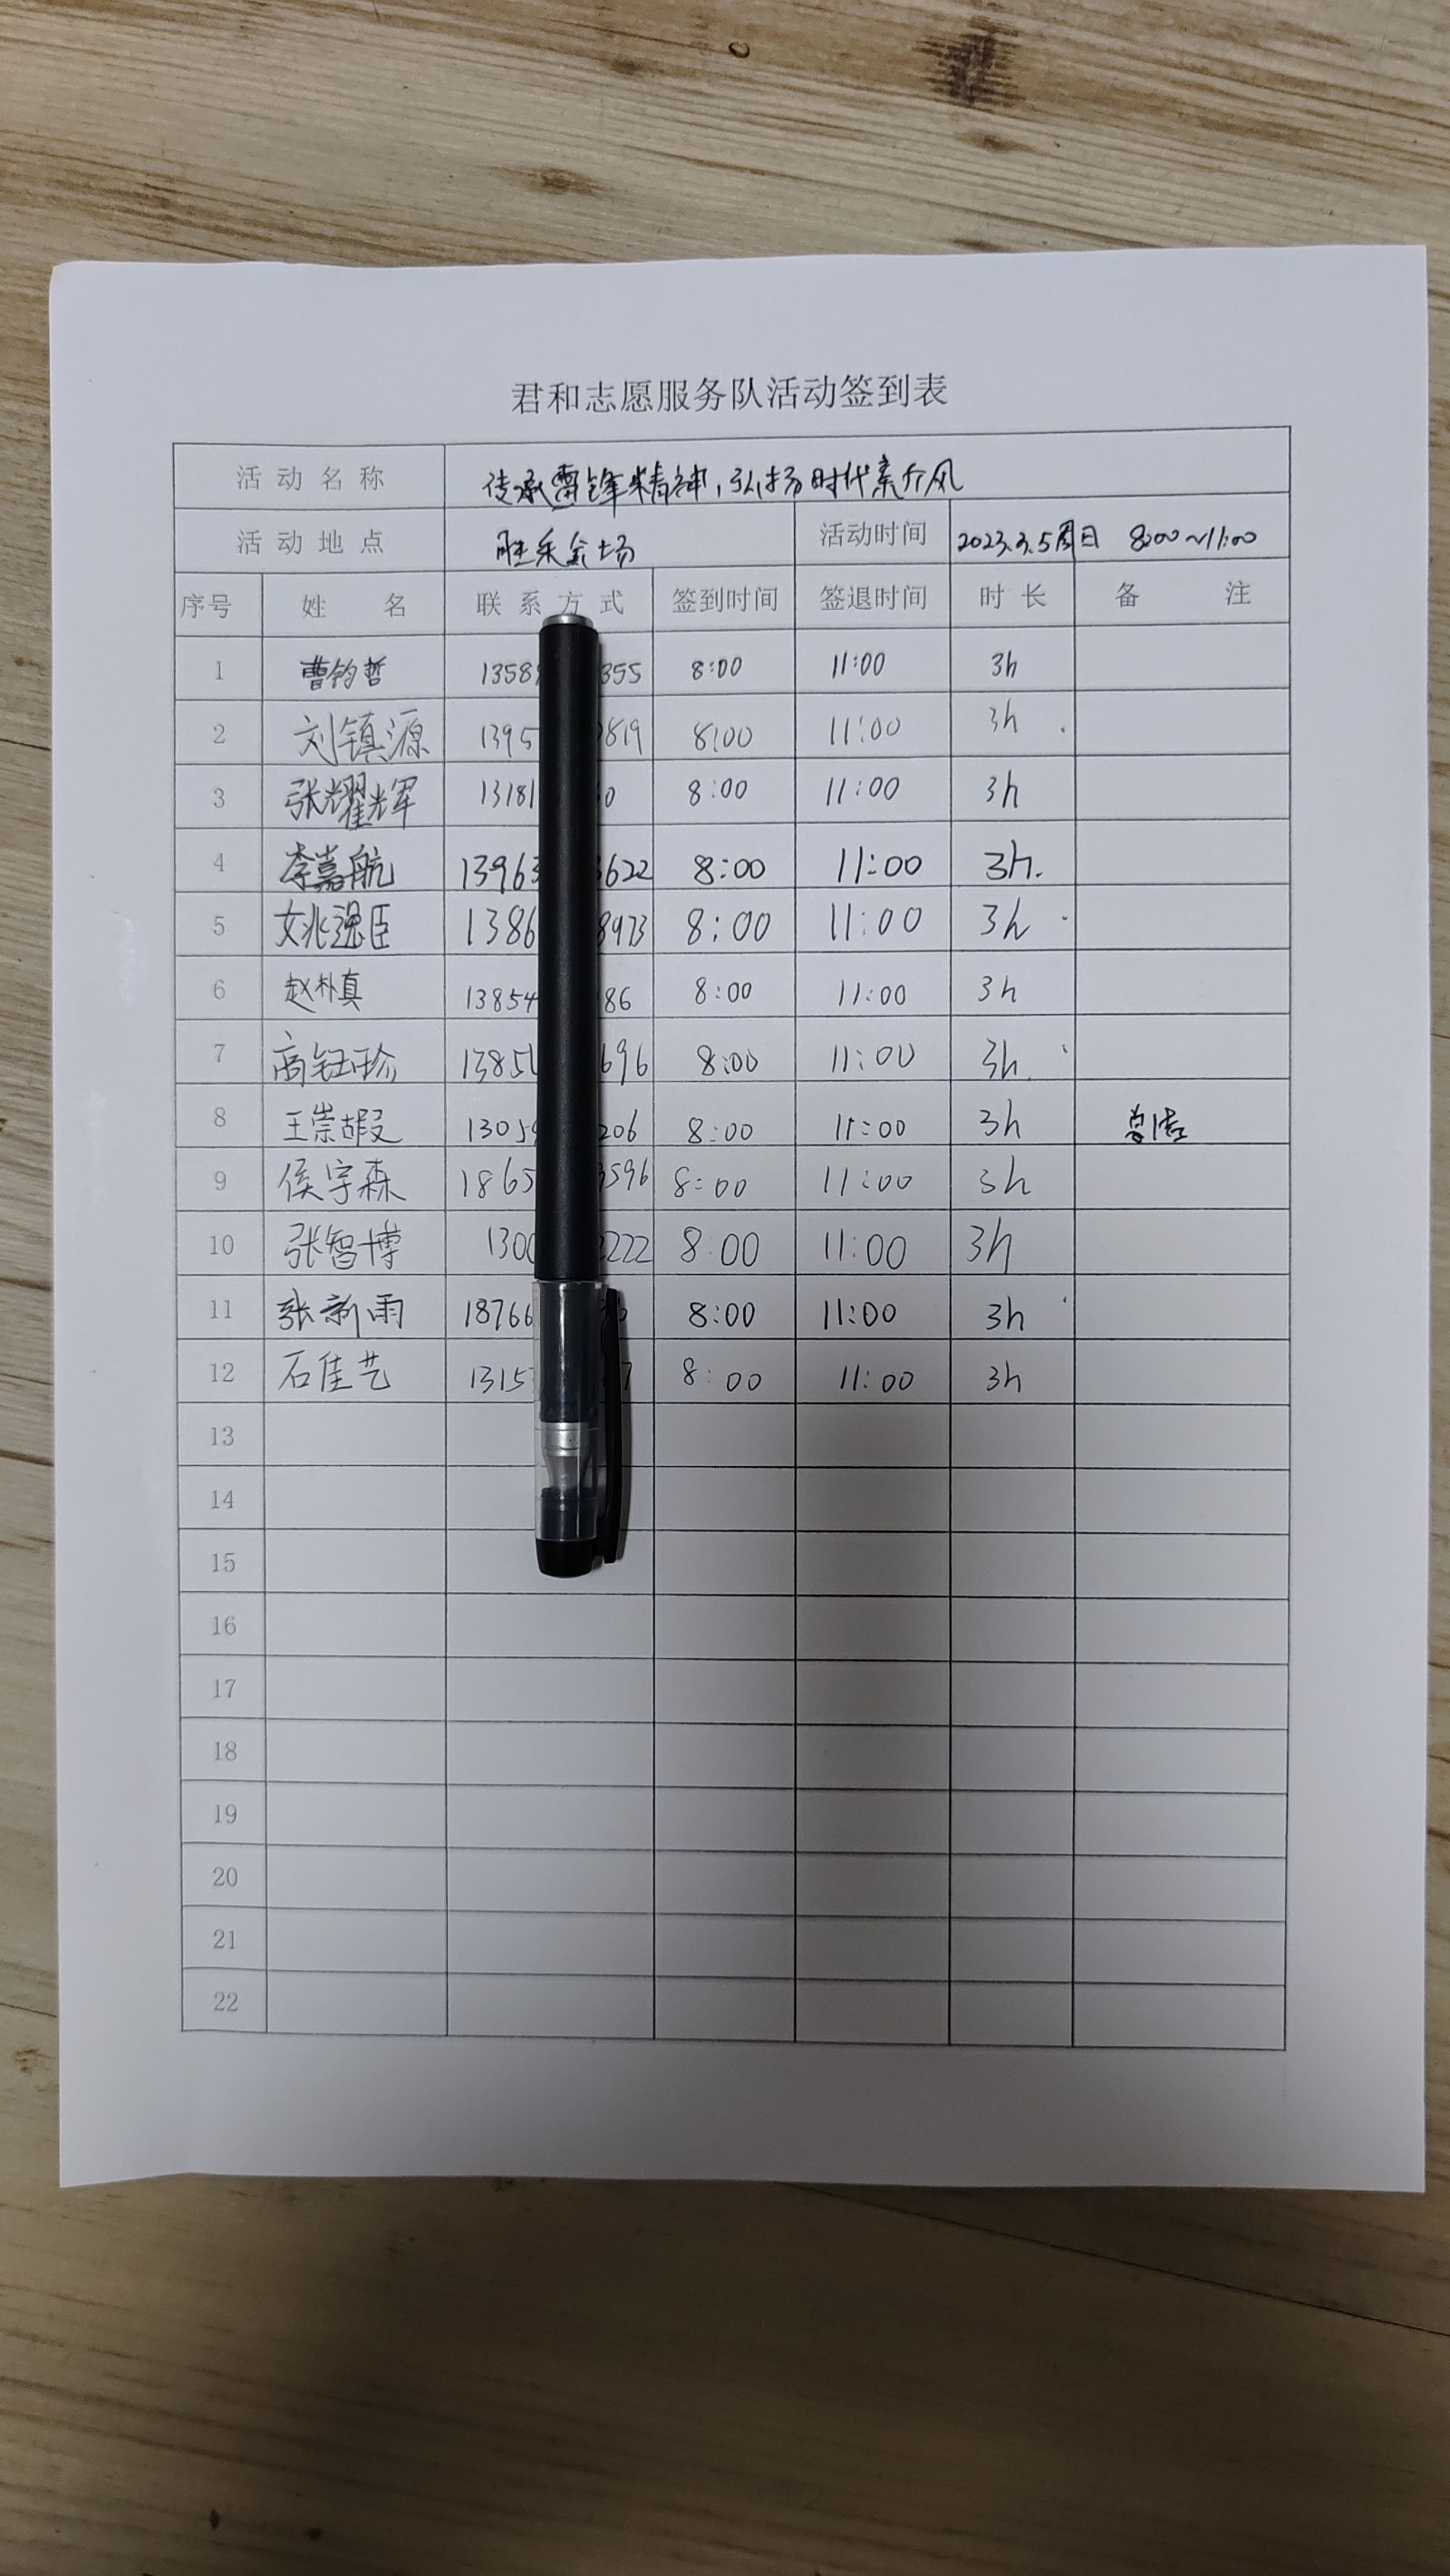 君和志愿服务队活动签到表
活动名称 传承雷锋精神,弘扬时代新风
活动地点 胜采会场 活动时间 2023.3.5周日 8:00~11:00
序号 姓名 联系方式 签到时间 签退时间 时长 备注
1 曹钧哲 1358 355 8:00 11:00 3h
2 刘镇源 1395 819 8:00 11:00 3h
3 张耀辉 13181 0 8:00 11:00 3h
4 李嘉航 13963 622 8:00 11:00 3h.
5 姚逸臣 1386 8973 8:00 11:00 3h
6 赵朴真 13854 86 8:00 11:00 3h
7 高钰珍 1385 696 8:00 11:00 3h
8 王崇 1305 206 8:00 11:00 3h 总结
9 侯宇森 1865 3596 8:00 11:00 3h
10 张智博 130 2222 8:00 11:00 3h
11 张新雨 18766 8:00 11:00 3h
12 石佳艺 1315 7 8:00 11:00 3h
13
14
15
16
17
18
19
20
21
22